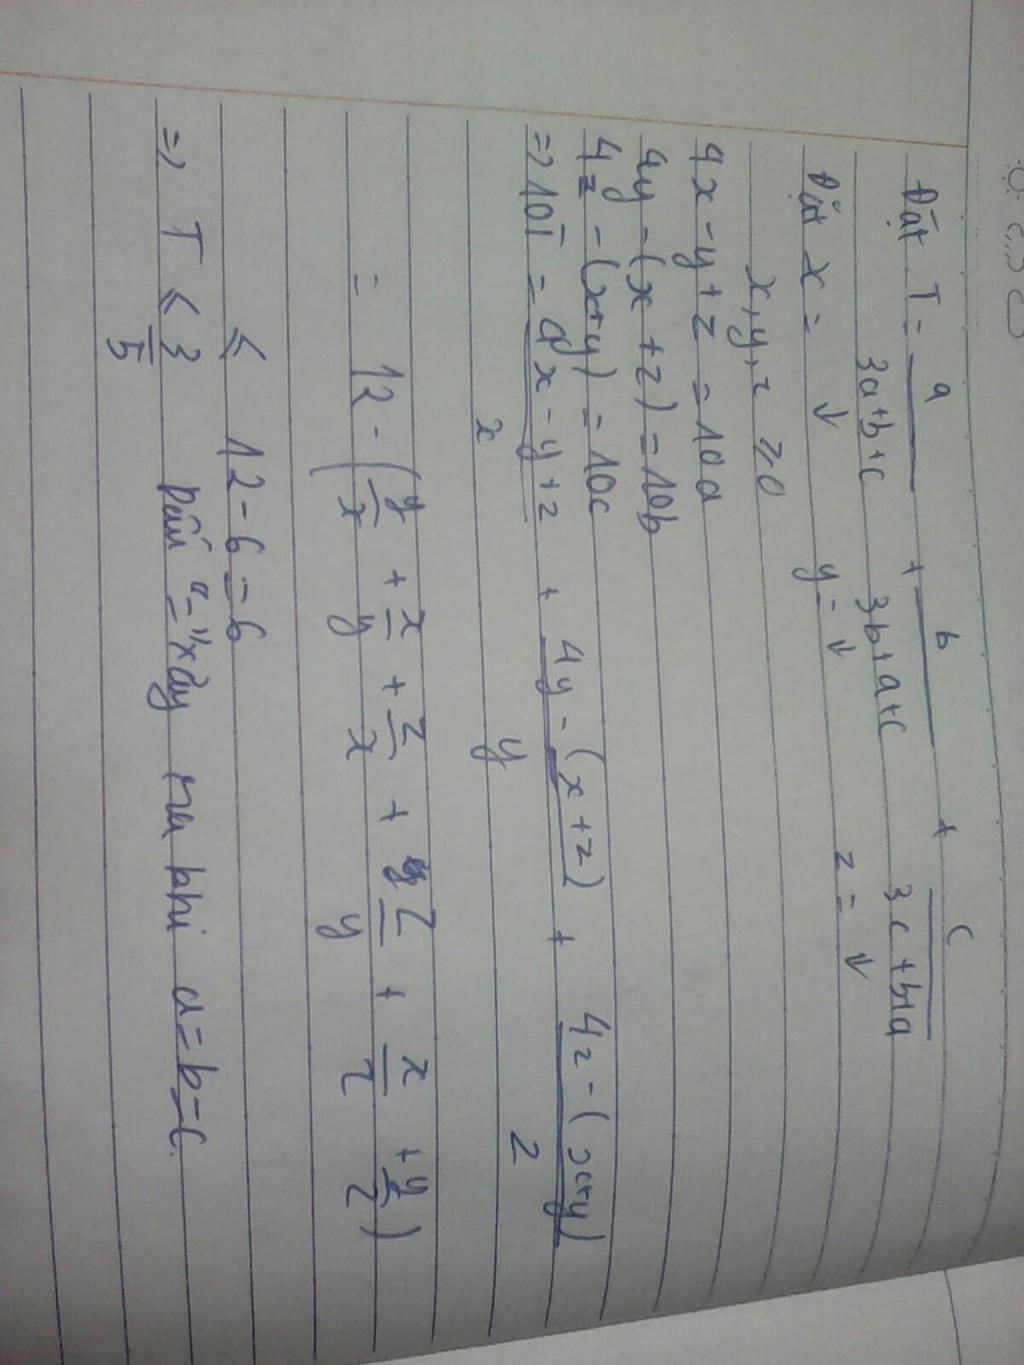 Đặt T = a/(3a+b+c) + b/(3b+a+c) + c/(3c+b+a)
Đặt x = ↓ y = ↓ z = ↓
x, y, z ≥ 0
4x - y + z = 10a
4y - (x + z) = 10b
4z - (x+y) = 10c
=> 10T = (4x - y + z)/x + (4y - (x + z))/y + (4z - (x+y))/z
= 12 - (y/x + x/y + z/x + z/y + x/z + y/z)
≤ 12 - 6 = 6
=> T ≤ 3/5 Dấu "=" xảy ra khi a = b = c.